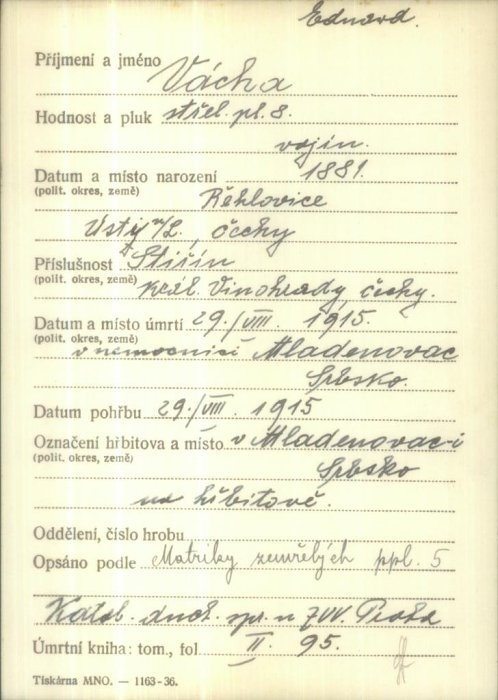 Eduard.
Příjmení a jméno Vácha
Hodnost a pluk střel. pl. 8.
vojín.
Datum a místo narození 1881.
(polit. okres, země) Řehlovice
Ústí n/L, čechy
Příslušnost Štiřín
(polit. okres, země) král. Vinohrady, čechy.
Datum a místo úmrtí 29./VIII. 1915.
(polit. okres, země) v nemocnici Mladenovac
Srbsko.
Datum pohřbu 29./VIII. 1915
Označení hřbitova a místo v Mladenovac-i
(polit. okres, země) Srbsko
na hřbitově.
Oddělení, číslo hrobu
Opsáno podle Matriky zemřelých ppl. 5
Katol. duch. spr. u ZVV. Praha
Úmrtní kniha: tom., fol II. 95.
Tiskárna MNO. — 1163-36.